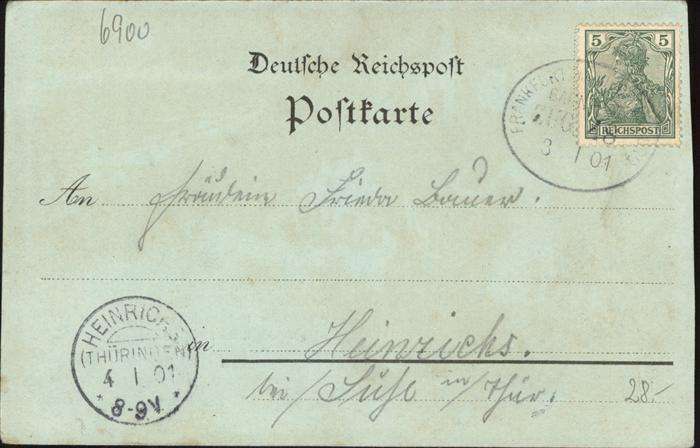 6900
Deutsche Reichspost
Postkarte
5 5
REICHSPOST
FRANKFURT
BAHN
3 1 01
An Fräulein Frieda Bauer.
in Heinrichs.
bei/Suhl in/Thür.
28.-
HEINRICHS
(THÜRINGEN)
4 1 01
* 8-9V *